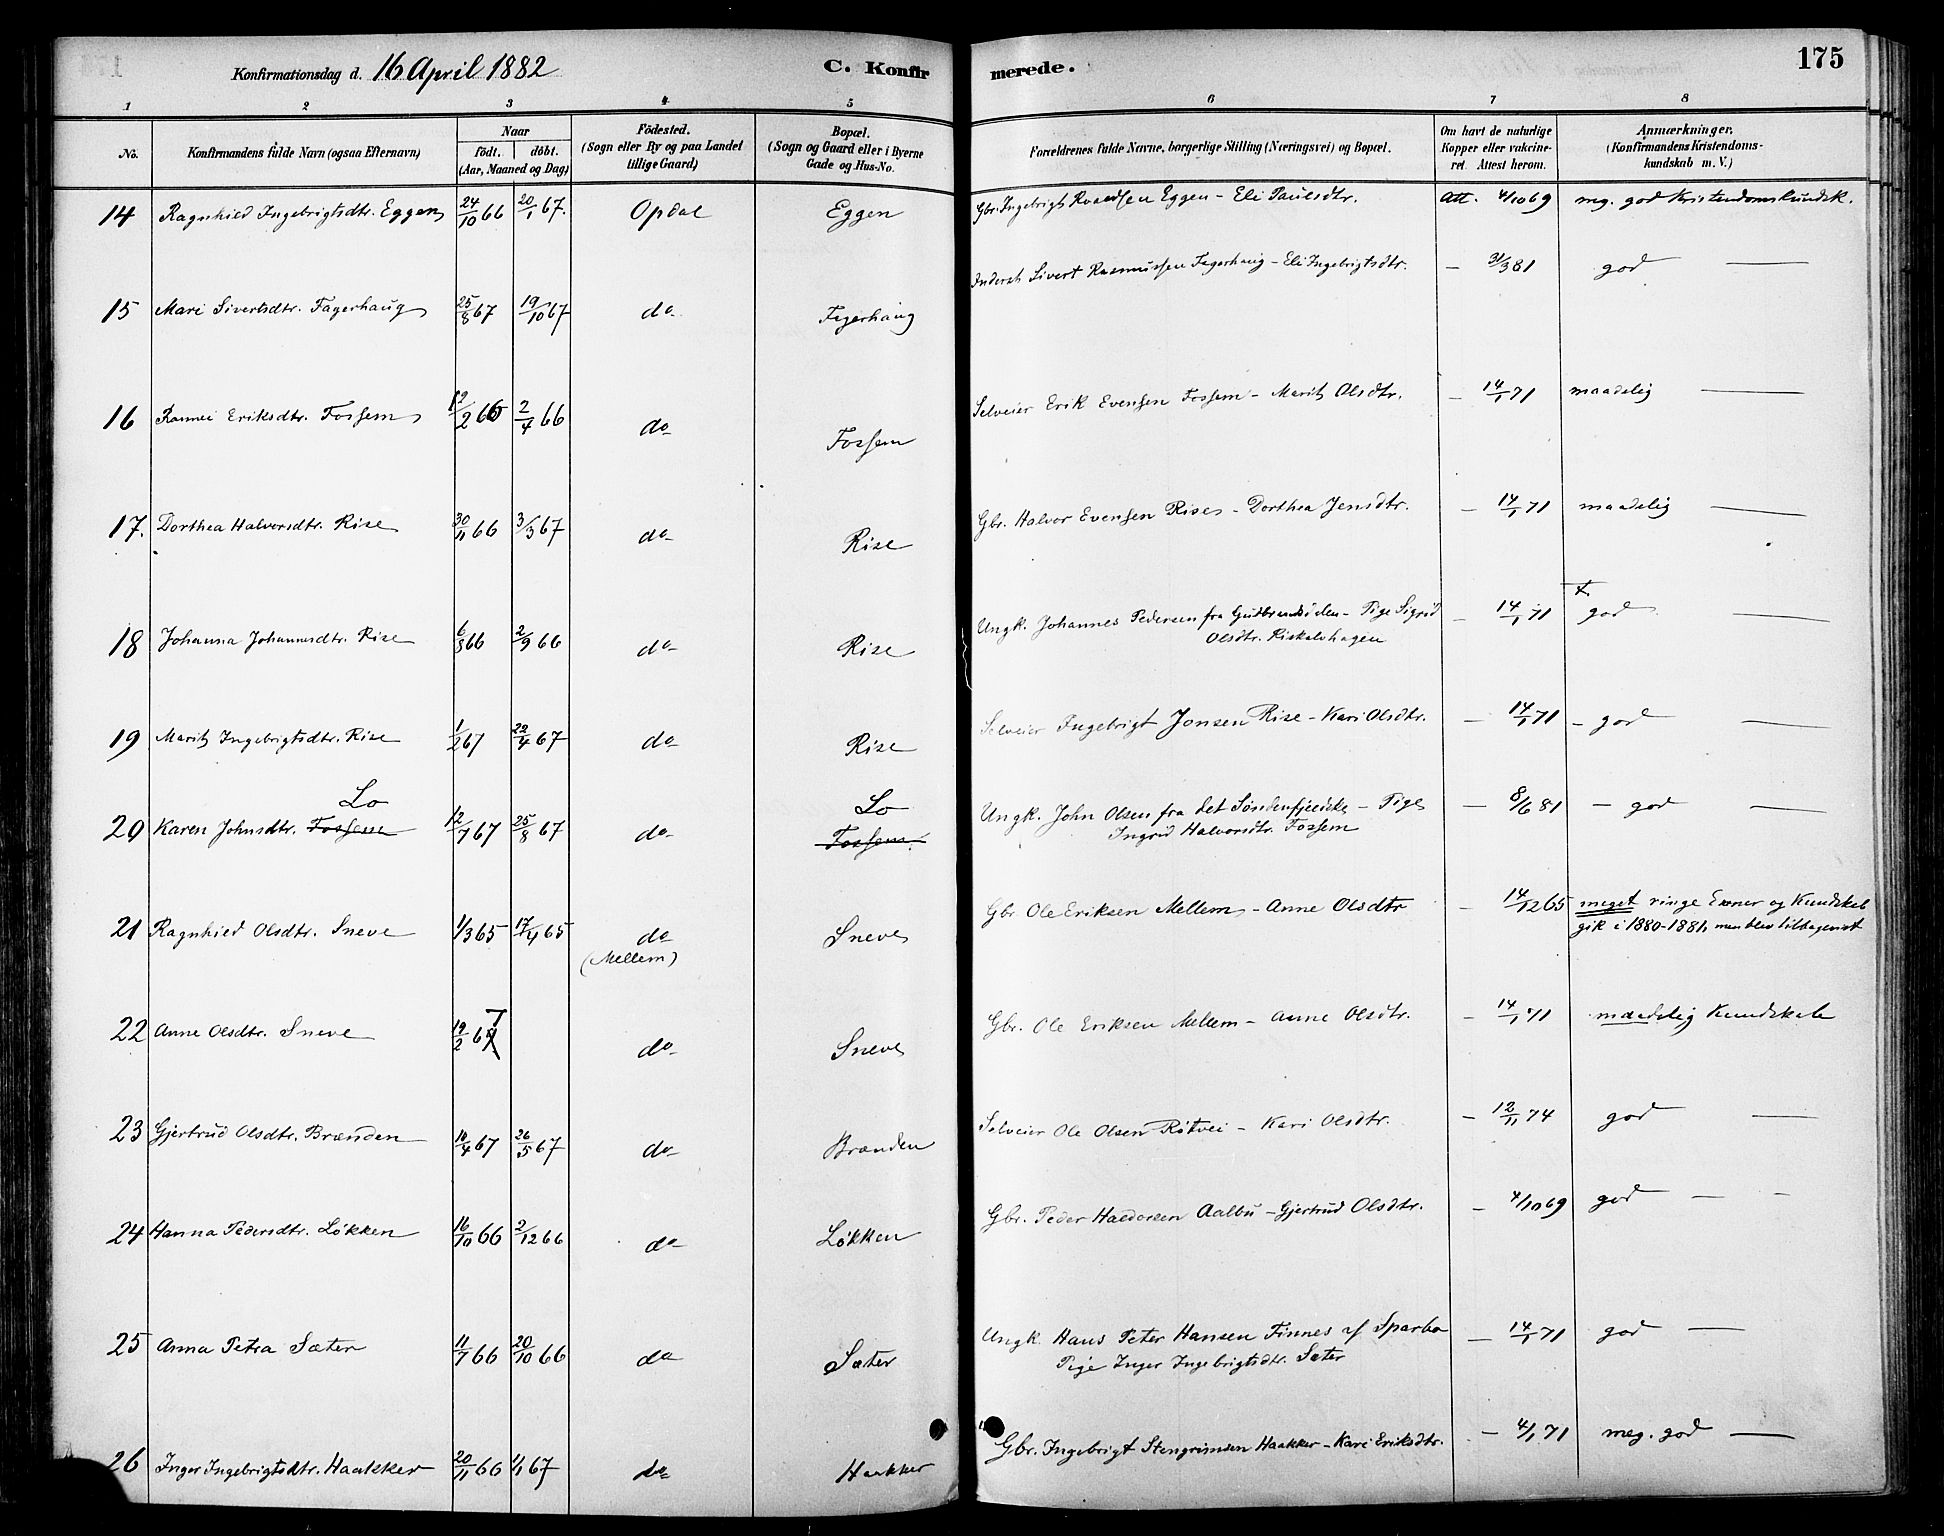 Konfirmationsdag d. 16 April 1882 C. Konfirmerede. 175
1 2 3 4 5 6 7 8
No. Konfirmandens fulde Navn (ogsaa Efternavn) Naar födt. döbt. (Aar, Maaned og Dag) Födested. (Sogn eller By og paa Landet tillige Gaard) Bopæl. (Sogn og Gaard eller i Byerne Gade og Hus-No. Forældrenes fulde Navne, borgerlige Stilling (Næringsvei) og Bopæl. Om havt de naturlige Kopper eller vakcineret. Attest herom. Anmærkninger. (Konfirmandens Kristendomskundskab m. V.)
14 Ragnhild Ingebrigtsdtr. Eggen 24/10 66 20/1 67. Opdal Eggen Gbr. Ingebrigt Eggen - Eli Paulsdtr. Att. 4/10 69 meg. god Kristendomskundsk.
15 Mari Sivertsdtr. Fagerhaug 25/8 67 19/10 67 do Fagerhaug Inderst Sivert Rasmussen Fagerhaug - Eli Ingebrigtsdtr. — 31/3 81 god —
16 Eriksdtr. Fossem 12/2 66 2/4 66 do Fossem Selveier Erik Evensen Fossem - Marit Olsdtr. — 14/1 71 maadelig —
17. Dorthea Halvorsdtr. Rise 30/11 66 3/3 67 do Rise Gbr. Halvor Evensen Rise - Dorthea Jensdtr. — 14/1 71 maadelig —
18 Johanna Johannesdtr. Rise 6/8 66 2/9 66 do Rise Ungk. Johannes Pedersen fra Gudbrandsdalen - Pige Sigrid — 14/1 71 god —
Olsdtr. Riskaelshagen
19 Marit Ingebrigtsdtr. Rise 1/2 67 22/4 67 do Rise Selveier Ingebrigt Jonsen Rise - Kari Olsdtr. — 14/1 71 - god —
Lo Lo
20 Karen Johnsdtr. Fossem 12/7 67 25/8 67 do Fossem Ungk. John Olsen fra det Søndenfjeldske - Pige — 8/6 81 - god —
Ingrid Halvorsdtr. Fossem
21 Ragnhild Olsdtr. Sneve 1/3 65 17/4 65 do Sneve Gbr. Ole Eriksen Mellem - Anne Olsdtr — 14/12 65 meget ringe Evner og Kundskab
(Mellem) gik i 1880-1881, men blev tilbagevist
22 Anne Olsdtr. Sneve 19/2 67 do Sneve Gbr. Ole Eriksen Mellem - Anne Olsdtr. — 14/1 71 maadelig Kundskab
23 Gjertrud Olsdtr. Brænden 16/4 67 26/5 67 do Brænden Selveier Ole Olsen Røtvei - Kari Olsdtr. — 12/11 74 god —
24 Hanna Pedersdtr. Løkken 16/10 66 2/12 66 do Løkken Gbr. Peder Haldorsen Aalbu - Gjertrud Olsdtr. — 4/10 69 god — -
25 Anna Petra Sæter 11/7 66 20/10 66 do Sæter Ungk. Hans Peter Hansen Finnes af Sparbo — 14/1 71 god —
Pige Inger Ingebrigtsdtr. Sæter
26 Inger Ingebrigtsdtr. Haakker 20/11 66 1/1 67 do Haakker Gbr. Ingebrigt Stengrimsen Haakker - Kari Eriksdtr. — 4/1 71 meg. god —